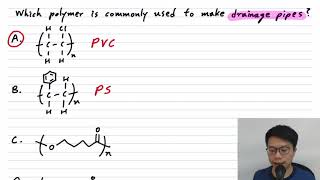 Which polymer is commonly used to make drainage pipes?
A. H Cl
( C - C )n PVC
H H
B. H
( C - C )n PS
H H
C. O
( O )n